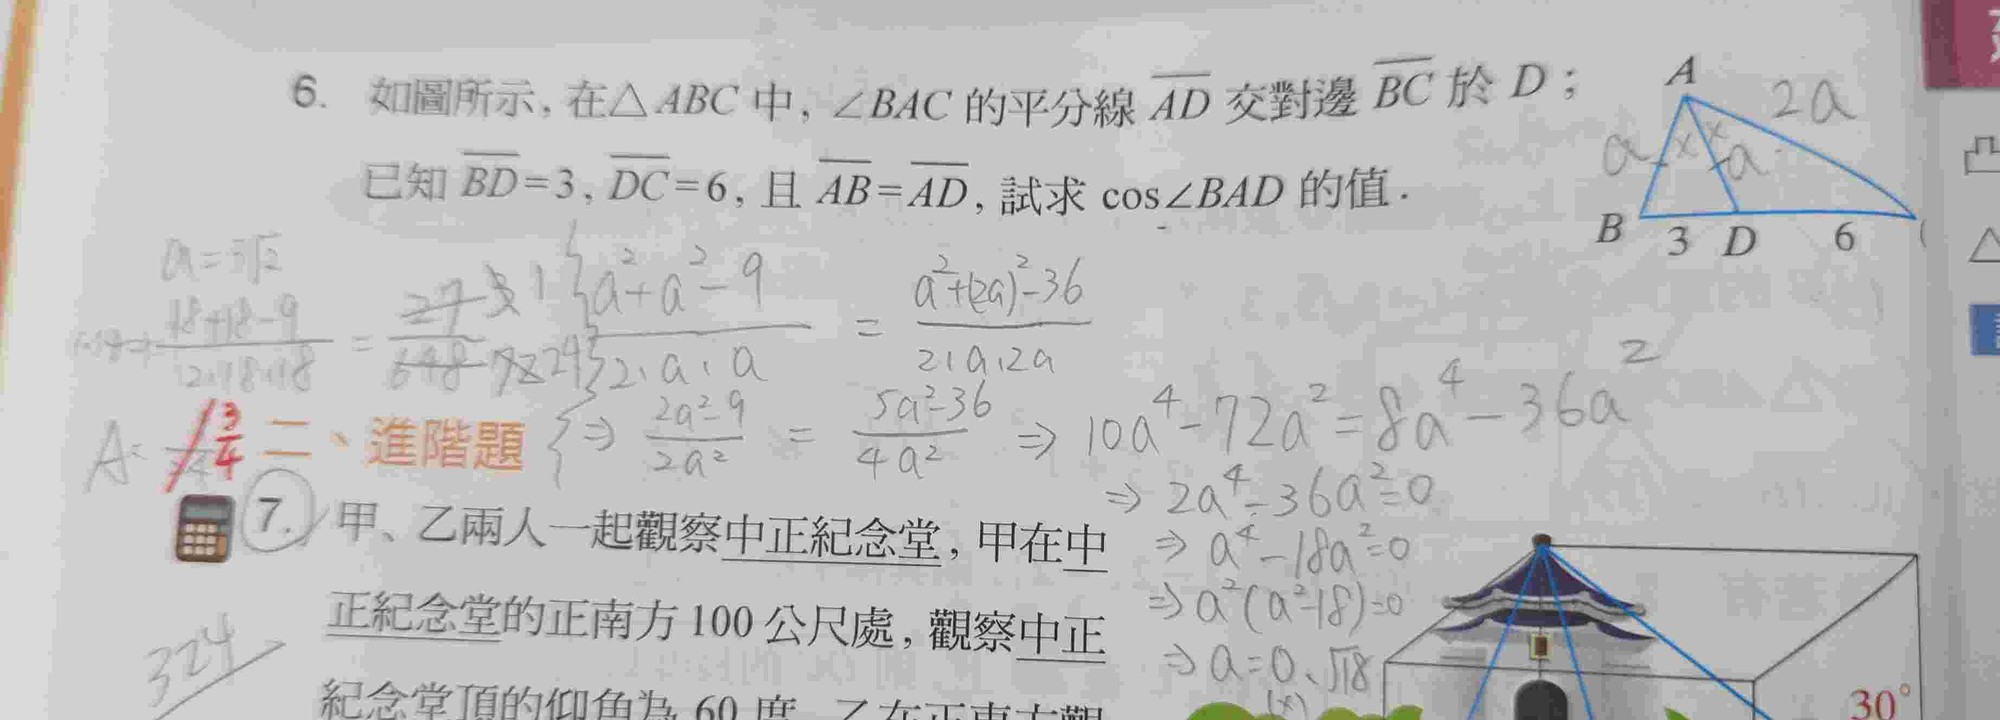 6. 如圖所示, 在△ABC 中, ∠BAC 的平分線 AD 交對邊 BC 於 D；
已知 BD=3, DC=6, 且 AB=AD, 試求 cos∠BAD 的值.
A
2a
a × × a
B 3 D 6
a=3√2
18+18-9 / 2·18·18 = 27 3 1 / 648 72 24
a²+a²-9 / 2·a·a = a²+(2a)²-36 / 2·a·2a
⇒ 2a²-9 / 2a² = 5a²-36 / 4a² ⇒ 10a⁴-72a²=8a⁴-36a²
⇒ 2a⁴-36a²=0
⇒ a⁴-18a²=0
⇒ a²(a²-18)=0
⇒ a=0、√18
(×)
A: 3/4
二、進階題
7. 甲、乙兩人一起觀察中正紀念堂, 甲在中
正紀念堂的正南方 100 公尺處, 觀察中正
紀念堂頂的仰角為 60 度, 乙在正東方觀
324
30°